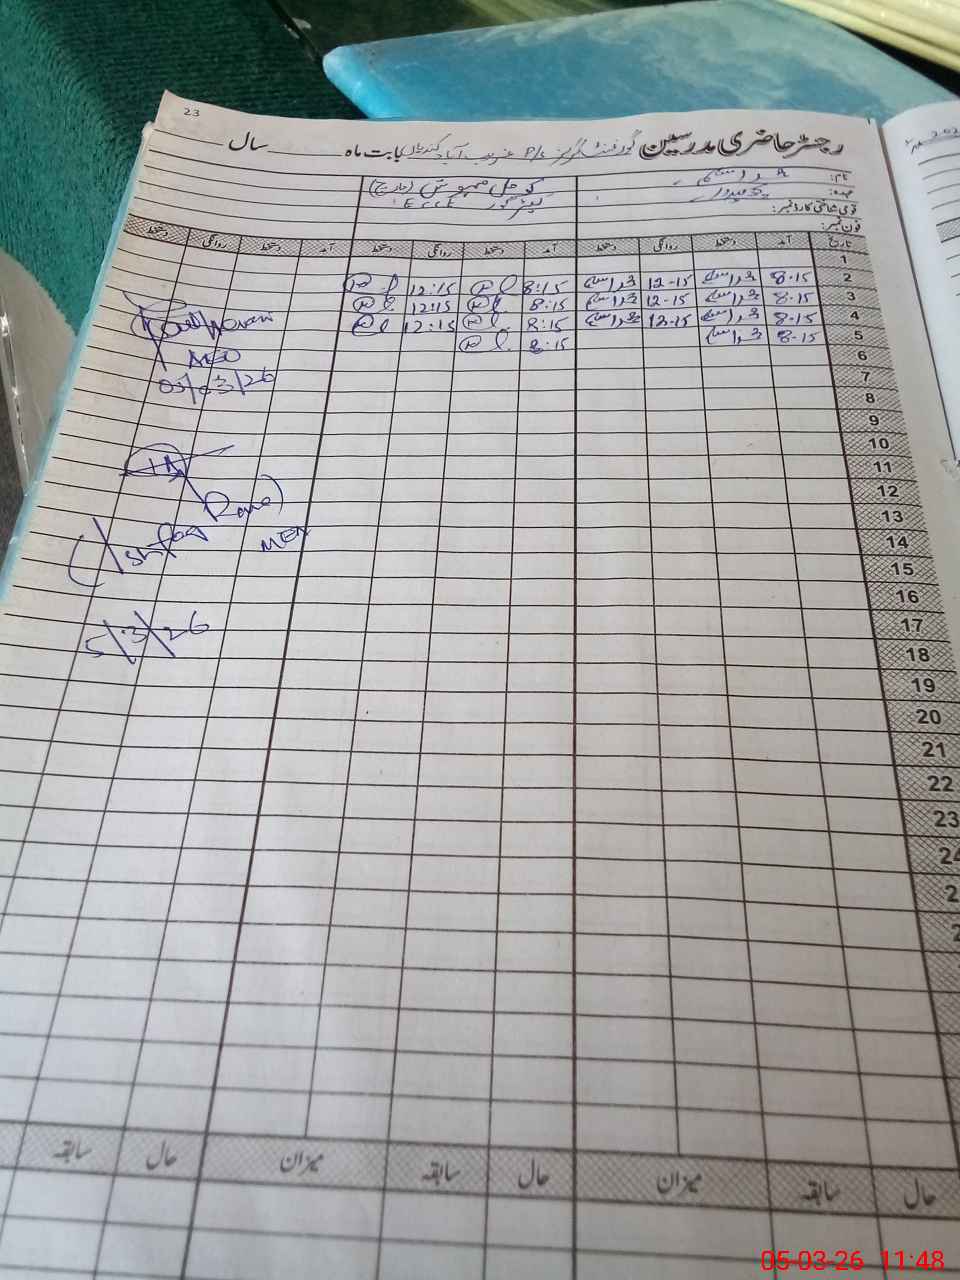 23
رجسٹر حاضری مدرسین گورنمنٹ گرلز P/S غریب آباد بابت ماہ سال
نام:
عہدہ:
قومی شناختی کارڈ نمبر:
فون نمبر:
کومل مہوش
ECCE
تاریخ آمد دستخط روانگی دستخط آمد دستخط روانگی دستخط آمد دستخط روانگی دستخط
1
2 8.15 12-15 8:15 12:15
3 8.15 12-15 8:15 12:15
4 8.15 12.15 8:15 12:15
5 8.15 8:15
6
7
8
9
10
11
12
13
14
15
16
17
18
19
20
21
22
23
24
2
2
AEO
05/03/26
(Ishfaq Rana)
MEA
5/3/26
حال سابقہ میزان حال سابقہ میزان حال سابقہ
05-03-26 11:48